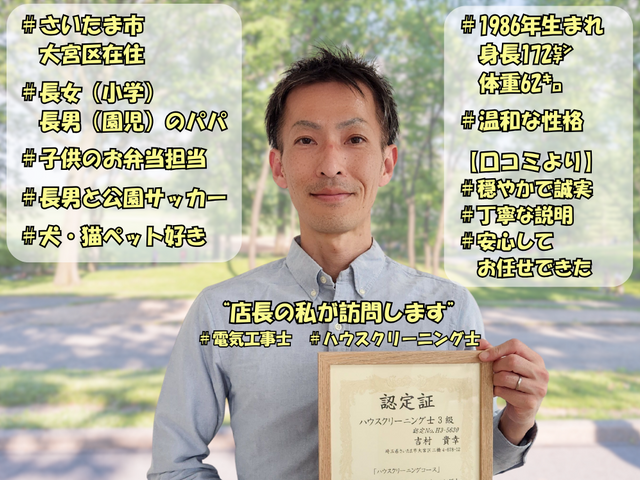 #さいたま市
大宮区在住
#長女（小学）
長男（園児）のパパ
#子供のお弁当担当
#長男と公園サッカー
#犬・猫ペット好き
#1986年生まれ
身長172㌢
体重62㌔
#温和な性格
【口コミより】
#穏やかで誠実
#丁寧な説明
#安心して
お任せできた
“店長の私が訪問します”
#電気工事士 #ハウスクリーニング士
認定証
ハウスクリーニング士3級
認定No.H3-5650
吉村 貴幸
「ハウスクリーニングコース」